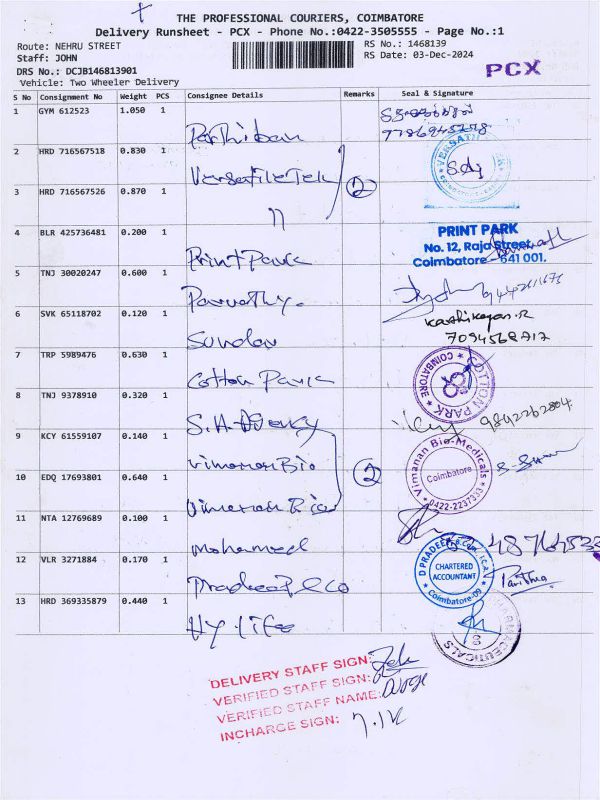 THE PROFESSIONAL COURIERS, COIMBATORE
Delivery Runsheet - PCX - Phone No.:0422-3505555 - Page No.:1
Route: NEHRU STREET
RS No.: 1468139
Staff: JOHN
RS Date: 03-Dec-2024
DRS No.: DCJB146813901
PCX
Vehicle: Two Wheeler Delivery
S No Consignment No Weight PCS Consignee Details Remarks Seal & Signature
1 GYM 612523 1.050 1 Parthiban
2 HRD 716567518 0.830 1 Versatile Tek 2
3 HRD 716567526 0.870 1 "
4 BLR 425736481 0.200 1 Print Park PRINT PARK
No. 12, Raja Street,
Coimbatore - 641 001.
5 TNJ 30020247 0.600 1 Parvathy.
6 SVK 65118702 0.120 1 Sundar Karthikeyan.R
7094568717
7 TRP 5989476 0.630 1 Cotton Park COTTON PARK COIMBATORE
8 TNJ 9378910 0.320 1 S.H. Agency 9842262804
9 KCY 61559107 0.140 1 Vimanan Bio 2 Vimanan Bio-Medicals
Coimbatore
0422-2237333
10 EDQ 17693801 0.640 1 Vimanan Bio
11 NTA 12769689 0.100 1 Mohameed
12 VLR 3271884 0.170 1 Pradeep & Co D PRADEEP
CHARTERED
ACCOUNTANT
Coimbatore-09
13 HRD 369335879 0.440 1 Hy. life
DELIVERY STAFF SIGN:
VERIFIED STAFF SIGN:
VERIFIED STAFF NAME:
INCHARGE SIGN: